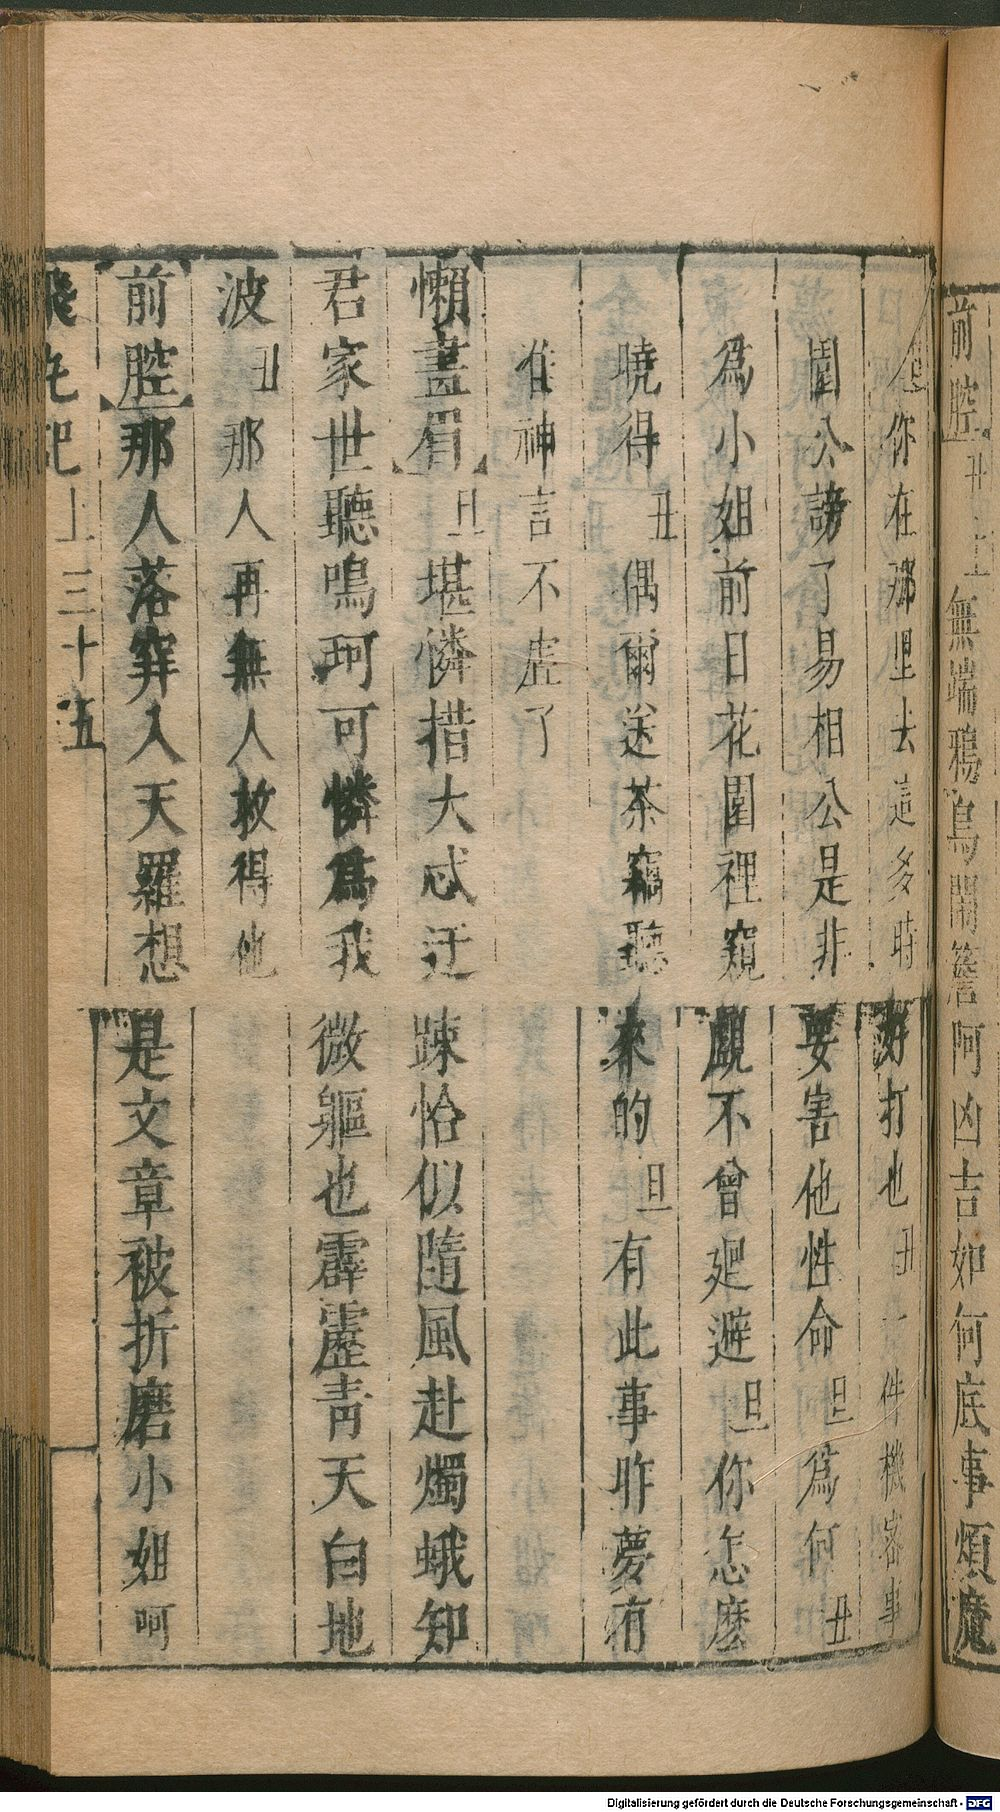 前腔 丑上 無端鴉鳥鬧簷阿凶吉如何底事煩魔
旦 你在那里去這多時 好打也 丑 一件機密事
園公謗了易相公是非 要害他性命 旦 爲何 丑
爲小姐前日花園裡窺 覰不曾廻避 旦 你怎麽
曉得 丑 偶爾送茶竊聽 來的 旦 有此事昨夢有
准神言不虛了
懶畫眉 丑 堪憐措大忒迂 踈恰似隨風赴燭蛾知
君家世聽鳴珂可憐爲我 微軀也霹靂靑天白地
波 丑 那人再無人救得他
前腔 那人落穽入天羅想 是文章被折磨小姐呵
上三十五
Digitalisierung gefördert durch die Deutsche Forschungsgemeinschaft - DFG